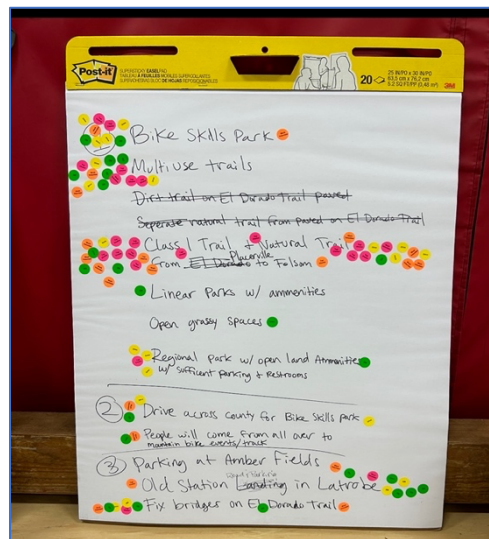 Post-it
SUPERSTICKY EASEL PAD
20
25 IN/PO x 30 IN/PO
63,5 cm x 76,2 cm
3M
Bike Skills Park
Multiuse trails
Dirt trail on El Dorado Trail paved
Seperate natural trail from paved on El Dorado Trail
Class 1 Trail + Natural Trail
Placerville
From El Dorado to Folsom
Linear Parks w/ ammenities
Open grassy spaces
Regional Park w/ open land Ammenities
w/ sufficent parking + Restrooms
2 Drive across county for Bike Skills park
People will come from all over to
maintain bike events/track
3 Parking at Amber Fields
Old Station Landing in Latrobe
Fix bridges on El Dorado Trail